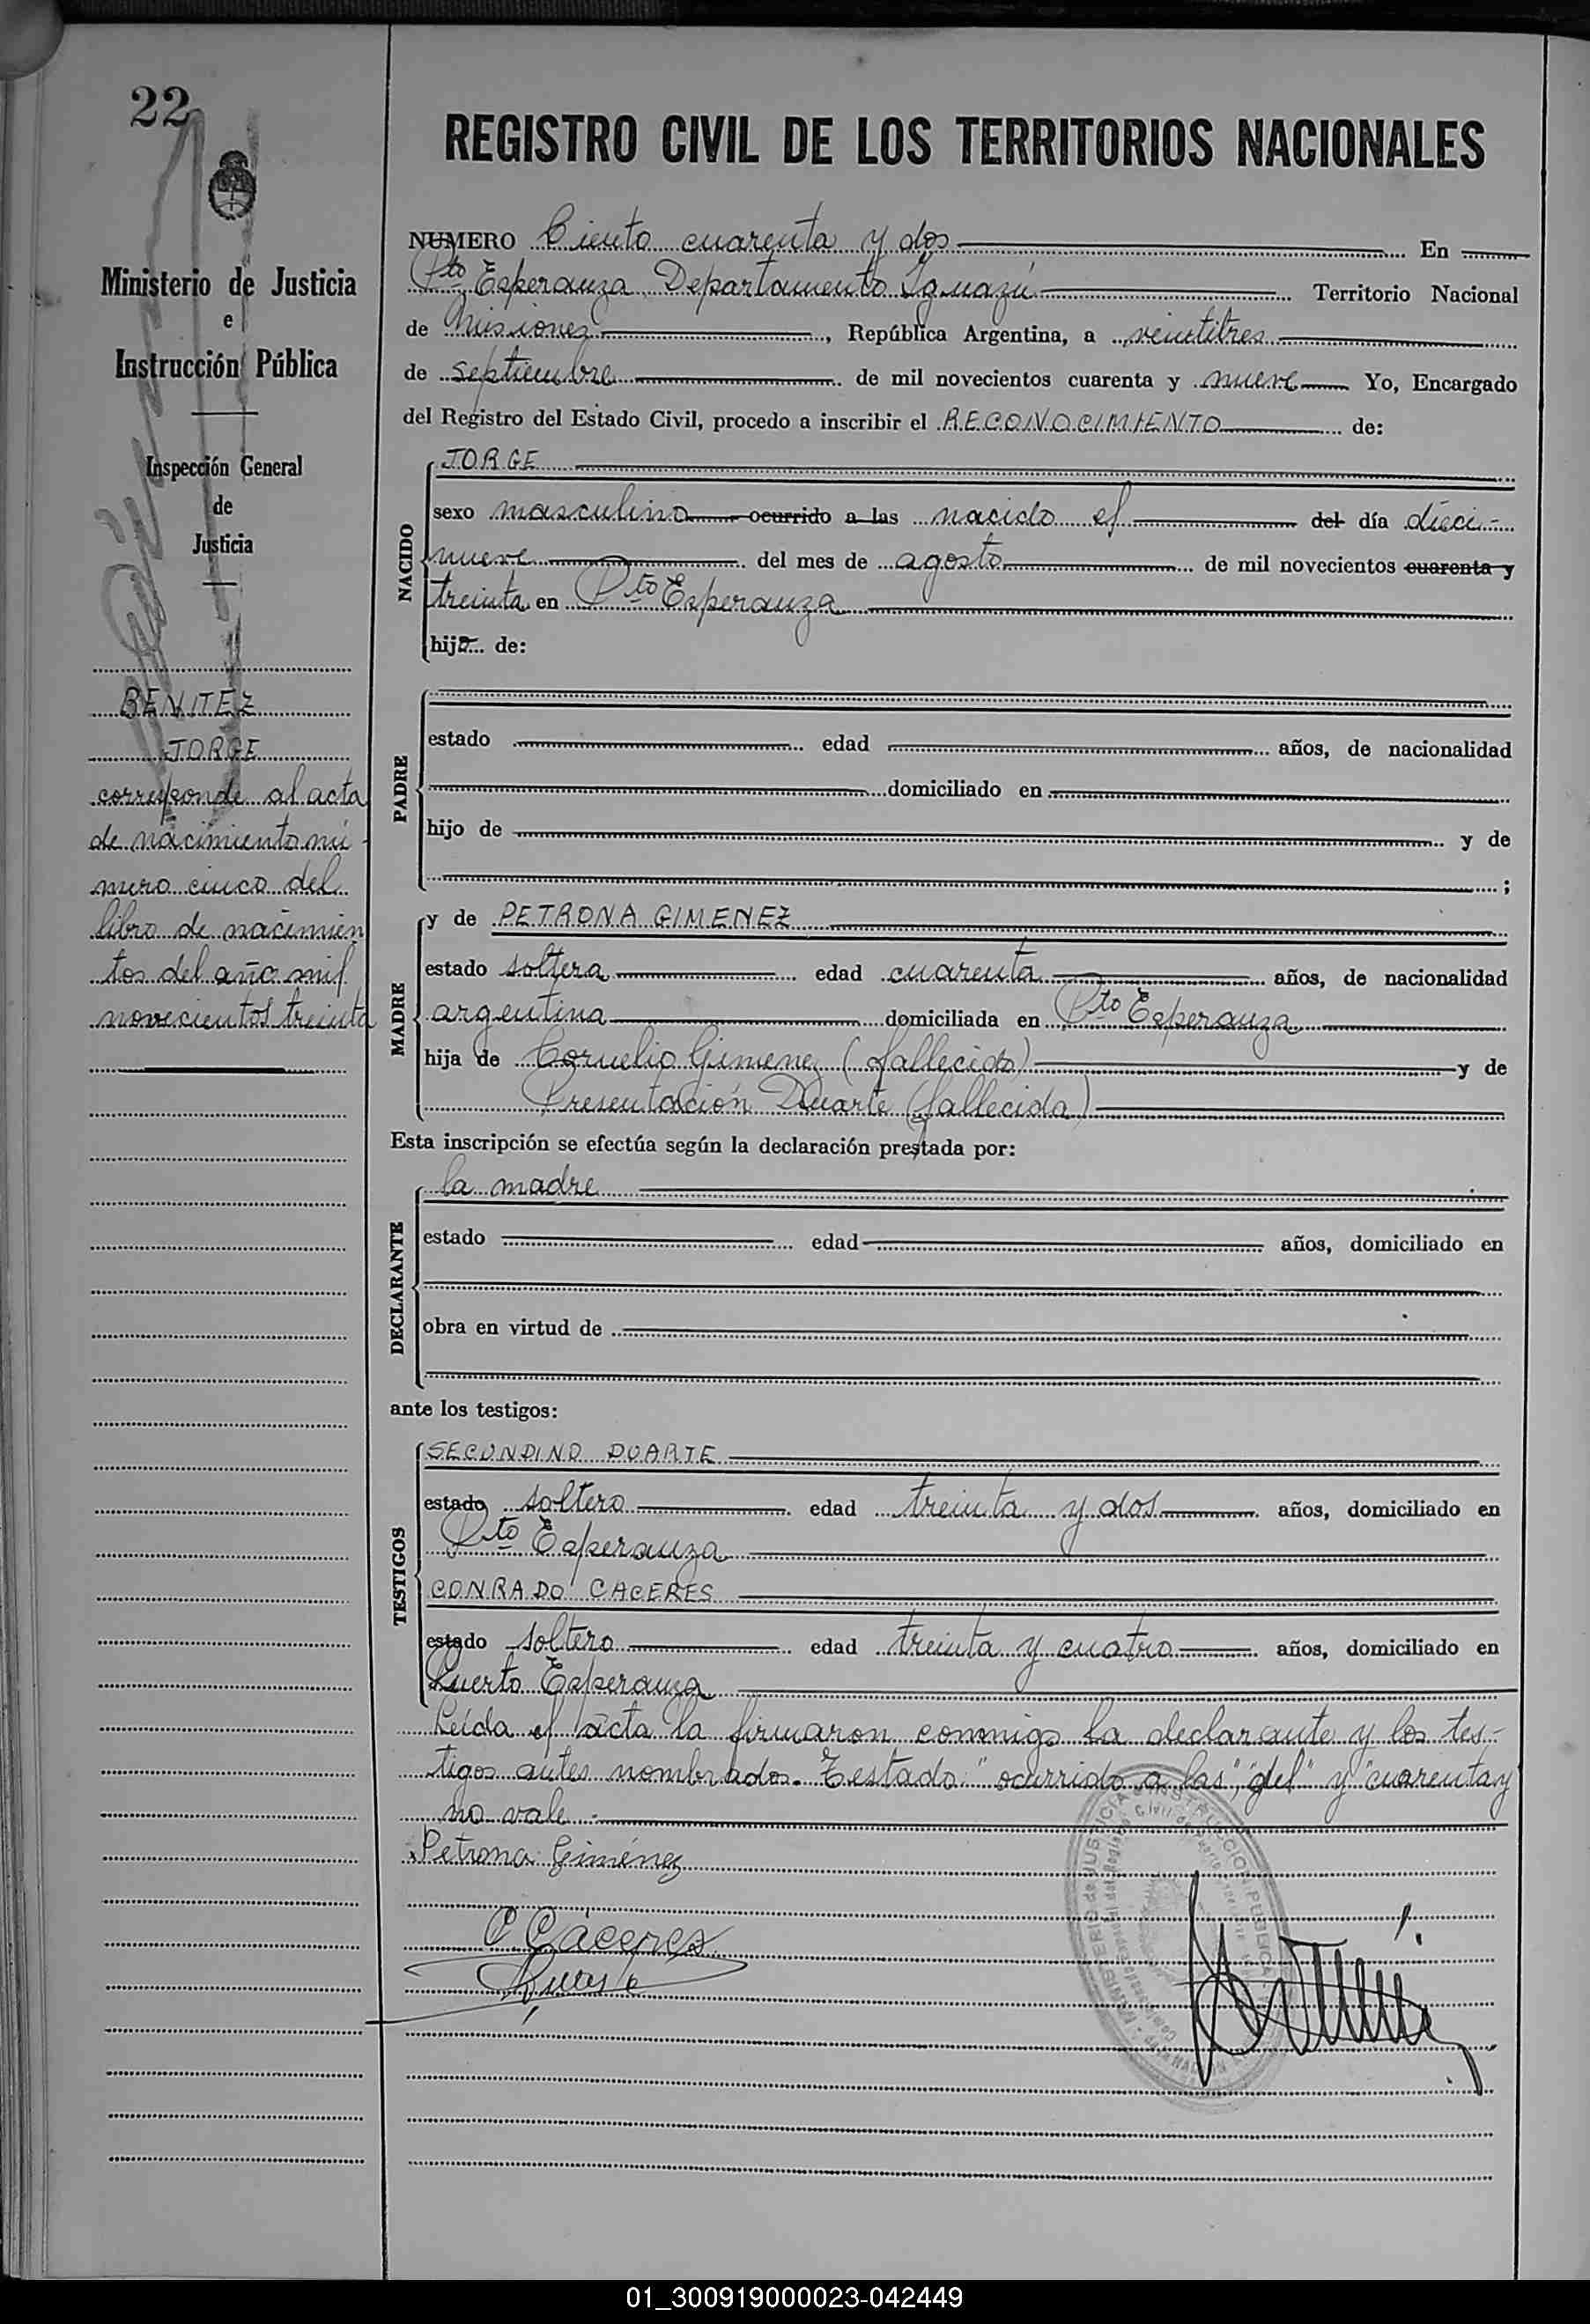 22
REGISTRO CIVIL DE LOS TERRITORIOS NACIONALES
Ministerio de Justicia
e
Instrucción Pública
Inspección General
de
Justicia
BENITEZ
JORGE
corresponde al acta
de nacimiento nú-
mero cinco del
libro de nacimien
tos del año mil
novecientos treinta
NUMERO Ciento cuarenta y dos En
Pto Esperanza Departamento Iguazú Territorio Nacional
de Misiones, República Argentina, a veintitres
de septiembre de mil novecientos cuarenta y nueve Yo, Encargado
del Registro del Estado Civil, procedo a inscribir el RECONOCIMIENTO de:
NACIDO
JORGE
sexo masculino ocurrido a las nacido el del día dieci-
nueve del mes de agosto de mil novecientos cuarenta y
treinta en Pto Esperanza
hijo de:
PADRE
estado edad años, de nacionalidad
domiciliado en
hijo de y de
;
MADRE
y de PETRONA GIMENEZ
estado soltera edad cuarenta años, de nacionalidad
argentina domiciliada en Pto Esperanza
hija de Cornelio Gimenez (fallecido) y de
Presentación Duarte (fallecida)
Esta inscripción se efectúa según la declaración prestada por:
DECLARANTE
la madre
estado edad años, domiciliado en
obra en virtud de
ante los testigos:
TESTIGOS
SECUNDINO DUARTE
estado soltero edad treinta y dos años, domiciliado en
Pto Esperanza
CONRADO CACERES
estado soltero edad treinta y cuatro años, domiciliado en
Puerto Esperanza
Leída el acta la firmaron conmigo la declarante y los tes-
tigos antes nombrados. Testado: "ocurrido a las", "del" y "cuarenta y
no vale.-
Petrona Giménez
C Cáceres
Duarte
MINISTERIO de JUSTICIA e INSTRUCCION PUBLICA
01_300919000023-042449